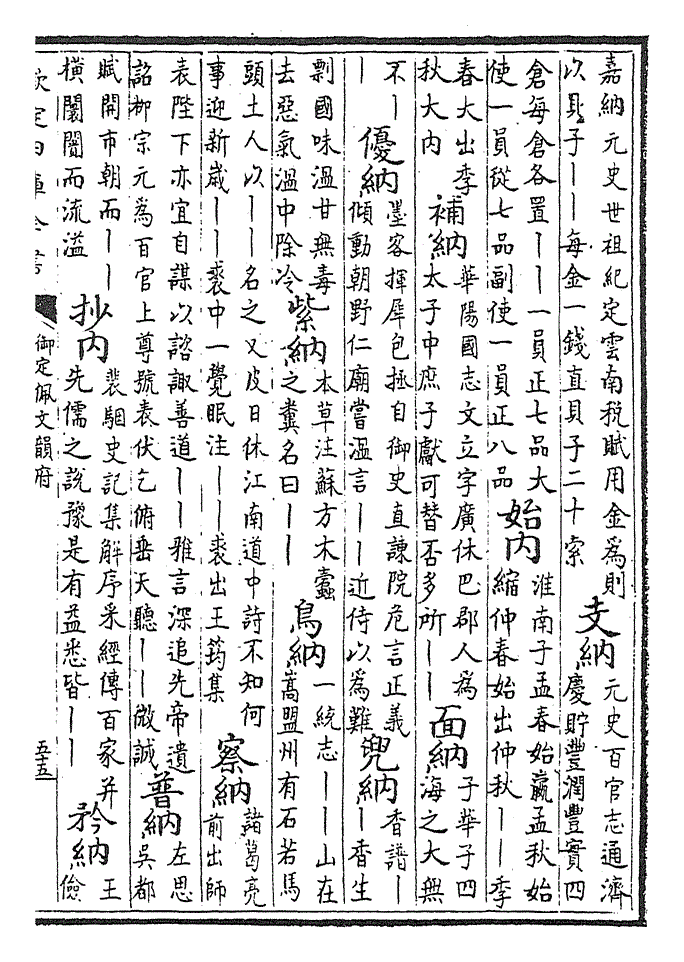 嘉納元史世祖紀定雲南稅賦用金為則以貝子——每金一錢直貝子二十索 支納 元史百官志通濟慶貯豐潤豐實四
倉每倉各置——一員正七品大使一員從七品副使一員正八品 始内 淮南子孟春始贏孟秋始縮仲春始出仲秋——季
春大出季秋大内 補納 華陽國志文立字廣休巴郡人為太子中庶子獻可替否多所—— 面納 子華子四海之大無
不—— 優納 墨客揮犀包拯自御史直諫院危言正義傾動朝野仁廟嘗温言——近侍以為難 兜納 香譜——香生
剽國味温甘無毒去惡氣温中除冷 紫納 本草注蘇方木蠹之糞名曰—— 鳥納 一統志——山在嵩盟州有石若馬
頭土人以——名之又皮日休江南道中詩不知何事迎新歲——裘中一覺眠注——裘出王筠集 察納 諸葛亮前出師
表陛下亦宜自謀以諮諏善道——雅言深追先帝遺詔柳宗元為百官上尊號表伏乞俯垂天聽——微誠 普納 左思吳都
賦開市朝而——橫闤闠而流溢 抄内 裴駰史記集解序采經傳百家并先儒之說豫是有益悉皆—— 矜納 王儉
欽定四庫全書 御定佩文韻府 五十五